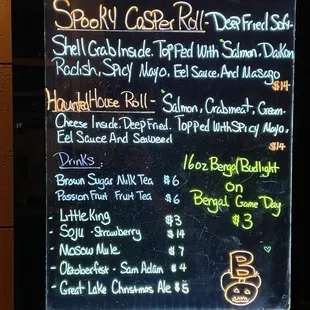 Spooky Casper Roll - Deep Fried Soft-
Shell Crab Inside. Topped With Salmon, Daikon
Radish, Spicy Mayo, Eel Sauce, And Masago
$14
Haunted House Roll - Salmon, Crabmeat, Cream-
Cheese Inside. Deep Fried. Topped With Spicy Mayo,
Eel Sauce And Seaweed
$14
Drinks:
Brown Sugar Milk Tea $6
Passion Fruit Fruit Tea $6
- Little King $3
- Soju - Strawberry $14
- Mosow Mule $7
- Oktoberfest - Sam Adam $4
- Great Lake Christmas Ale $5
16oz Bengal Budlight
on
Bengal Game Day
$3
B